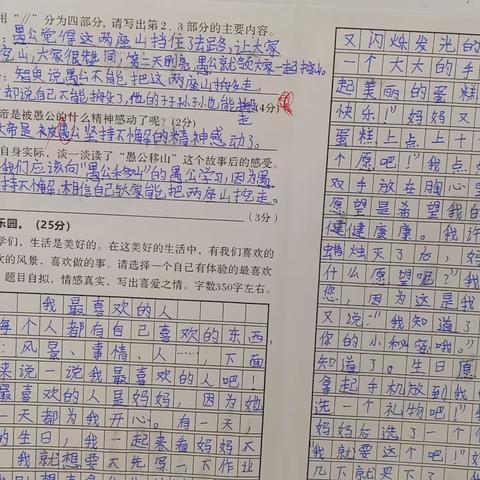 用“//”分为四部分,请写出第2、3部分的主要内容。
:愚公觉得这两座山挡住了去路,让大家
挖山,大家很赞同,第二天
愚公就领大家一起挖山。
:智叟说愚公不能把这两座山挖走,
却说自己不能挖了,他的子子孙孙也能挖走
(4分)
帝是被愚公的什么精神感动了呢?(2分)
帝是被愚公坚持不懈的精神感动了。
自身实际,谈一谈读了“愚公移山”这个故事后的感受。
我们应该向“愚公移山”的愚公学习,因为愚
持不懈,相信自己就能把两座山挖走。
(3分)
乐园。(25分)
学们,生活是美好的。在这美好的生活中,有我们喜欢的
欢的风景、喜欢做的事。请选择一个自己有体验的最喜欢
题目自拟,情感真实,写出喜爱之情。字数350字左右。
我最喜欢的人
每个人都有自己喜欢的东西,
:风景、事情、人……,下面
来说一说我最喜欢的人吧!
最喜欢的人是妈妈,因为她
一天都为我开心。有一天,
的生日,我一起来看妈妈不
我就想要不先写一下作业
又闪烁发光的
一个大大的手
起美丽的蛋糕
快乐!”妈妈又
蛋糕上点上十
个愿吧!”我点
双手放在胸心
愿望是希望我的
健健康康。我许
蜡烛灭了后,妈
什么愿望呢?”我
您,因为这是我
又说:“我知道了
你的小秘密哦。”
知道了。生日愿
拿起手机放到我
选一个礼物吧!”
妈妈后选了一个
“我就要这个吧!”妈
几下就买下了